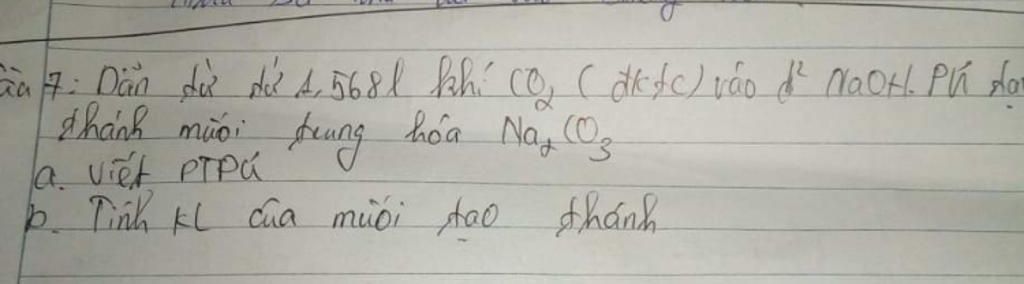 7: Dẫn từ từ 1,568l khí CO2 (đktc) vào d² NaOH. PƯ tạo
thành muối trung hóa Na2CO3
a. Viết PTPƯ
b. Tính KL của muối tạo thành